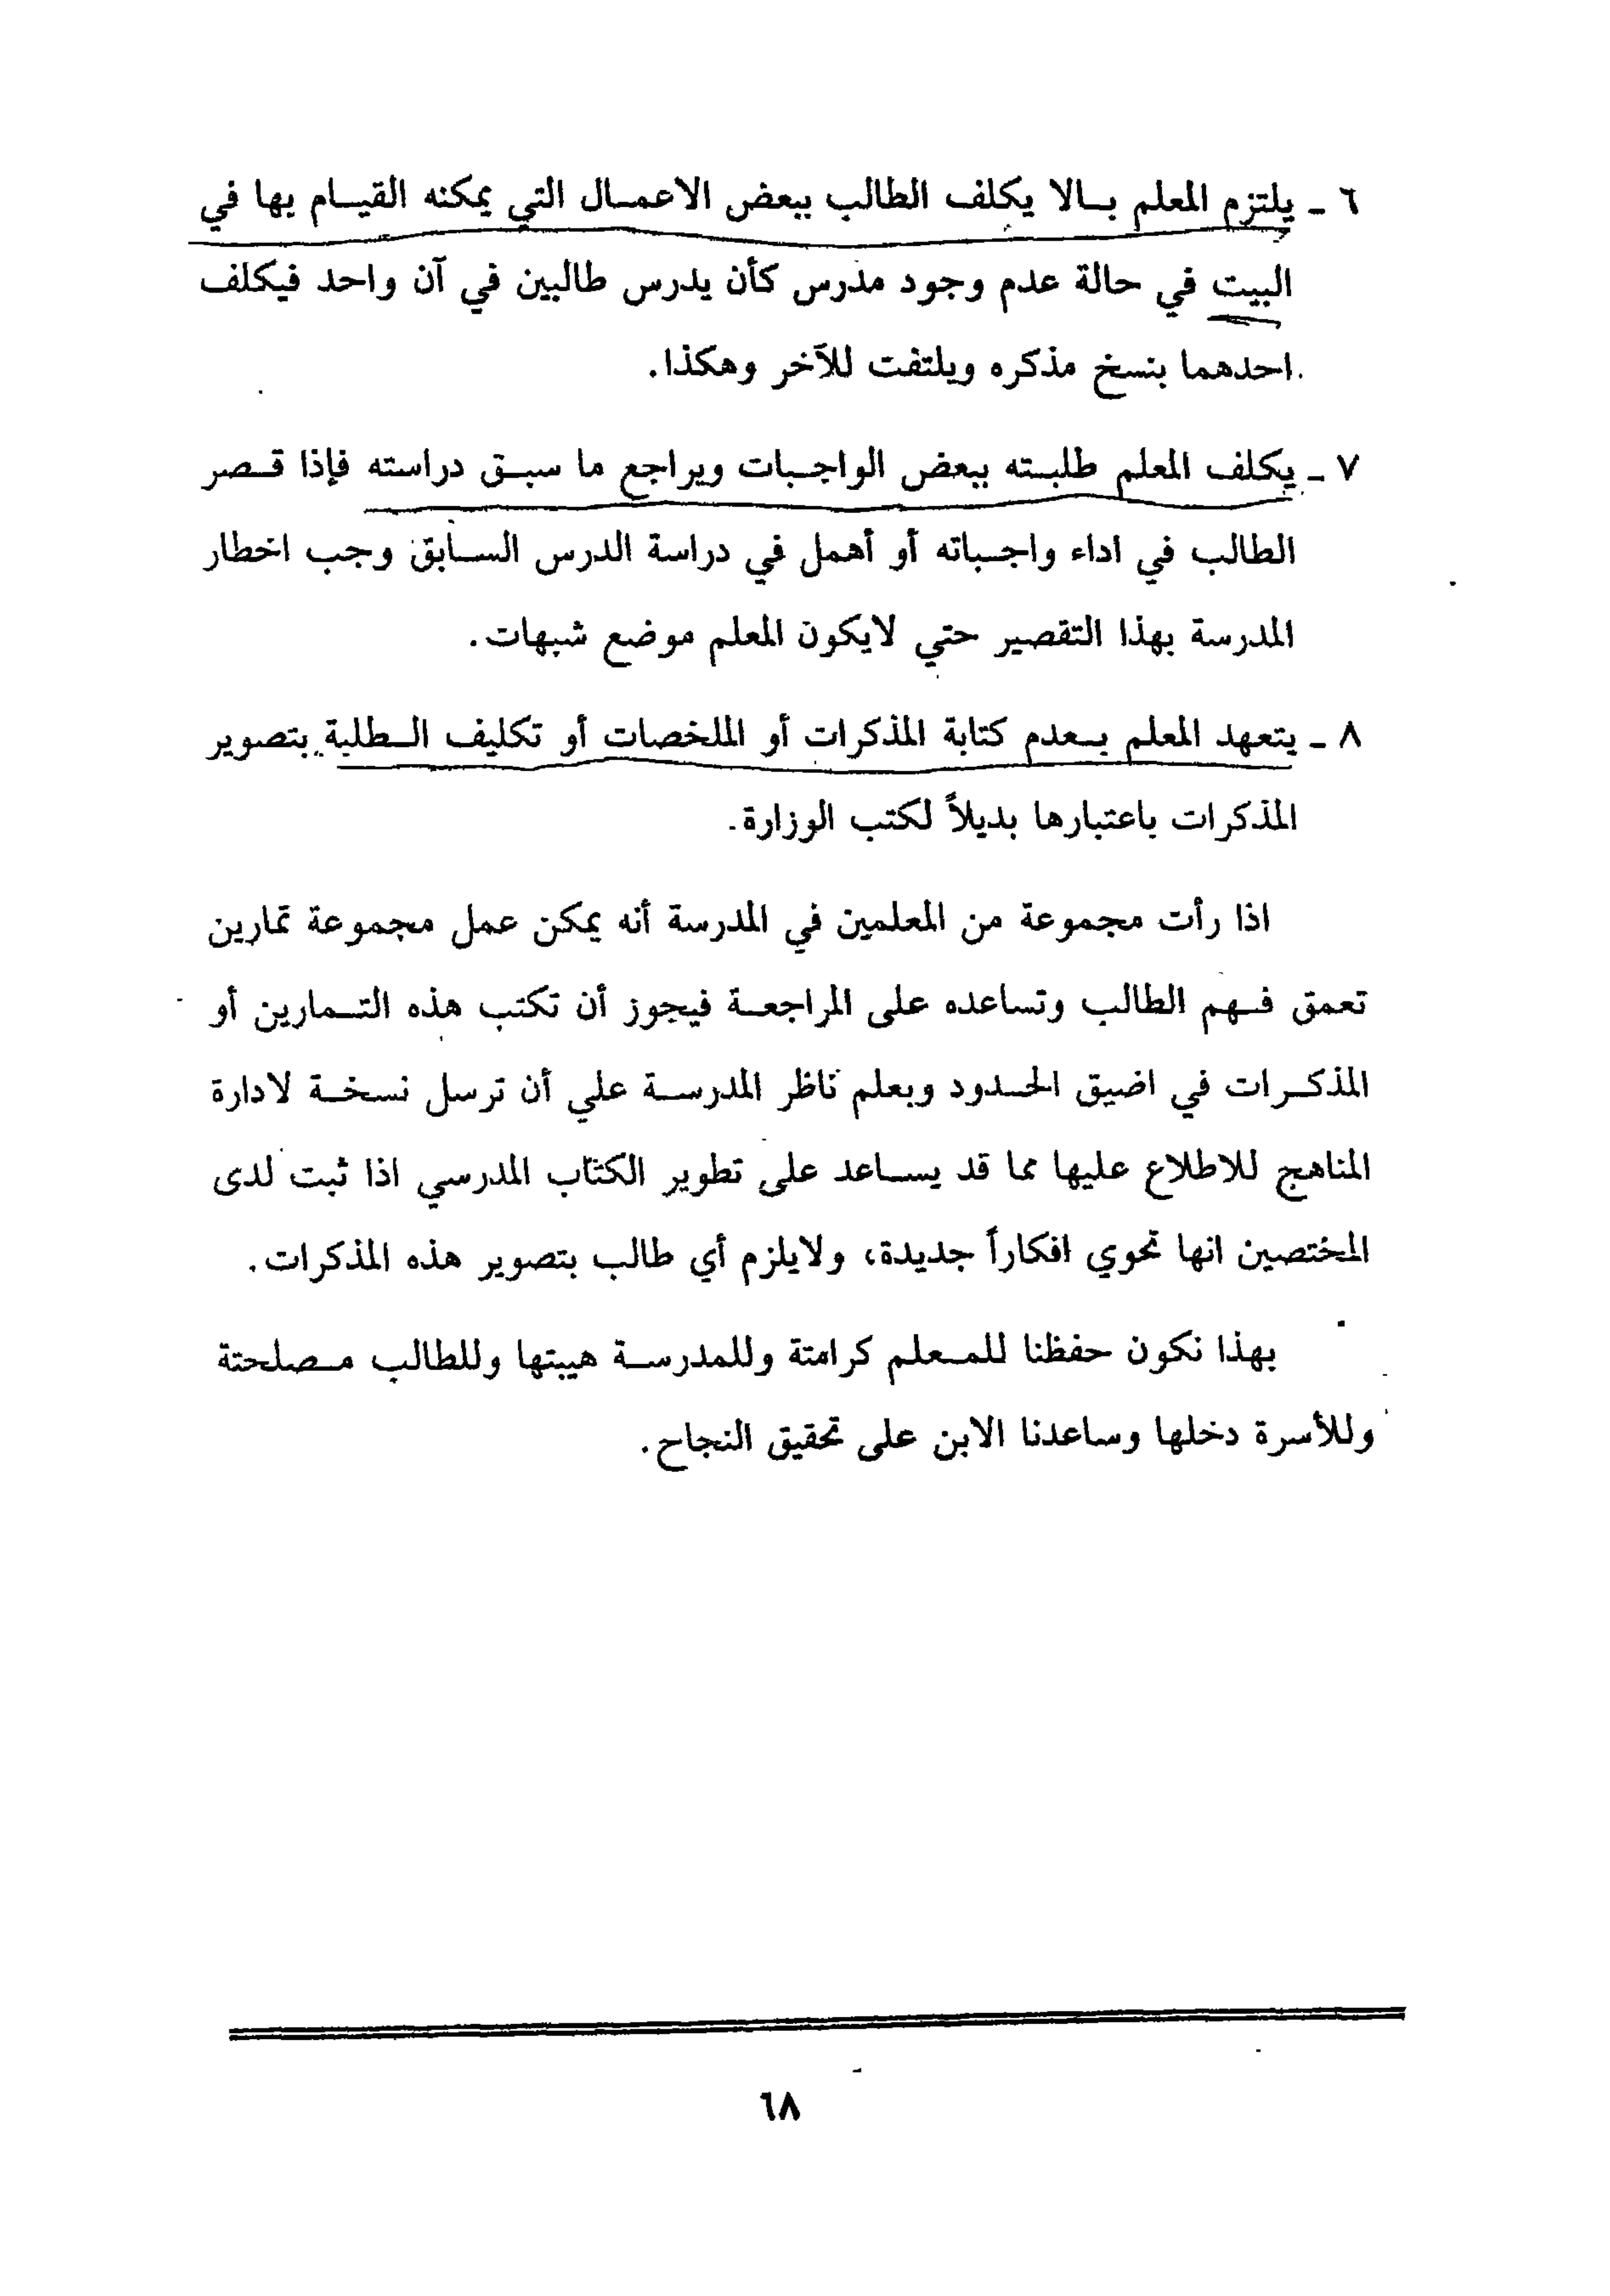 ٦ ـ يلتزم المعلم بالا يكلف الطالب ببعض الاعمال التي يمكنه القيام بها في
البيت في حالة عدم وجود مدرس كأن يدرس طالبين في آن واحد فيكلف
احدهما بنسخ مذكره ويلتفت للآخر وهكذا.
٧ ـ يكلف المعلم طلبته ببعض الواجبات ويراجع ما سبق دراسته فإذا قصر
الطالب في اداء واجباته أو أهمل في دراسة الدرس السابق وجب اخطار
المدرسة بهذا التقصير حتي لايكون المعلم موضع شبهات.
٨ ـ يتعهد المعلم بعدم كتابة المذكرات أو الملخصات أو تكليف الطلبة بتصوير
المذكرات باعتبارها بديلاً لكتب الوزارة.
اذا رأت مجموعة من المعلمين في المدرسة أنه يمكن عمل مجموعة تمارين
تعمق فهم الطالب وتساعده على المراجعة فيجوز أن تكتب هذه التمارين أو
المذكرات في اضيق الحدود وبعلم ناظر المدرسة علي أن ترسل نسخة لادارة
المناهج للاطلاع عليها مما قد يساعد على تطوير الكتاب المدرسي اذا ثبت لدى
المختصين انها تحوي افكاراً جديدة، ولايلزم أي طالب بتصوير هذه المذكرات.
بهذا نكون حفظنا للمعلم كرامتة وللمدرسة هيبتها وللطالب مصلحتة
وللأسرة دخلها وساعدنا الابن على تحقيق النجاح.
٦٨